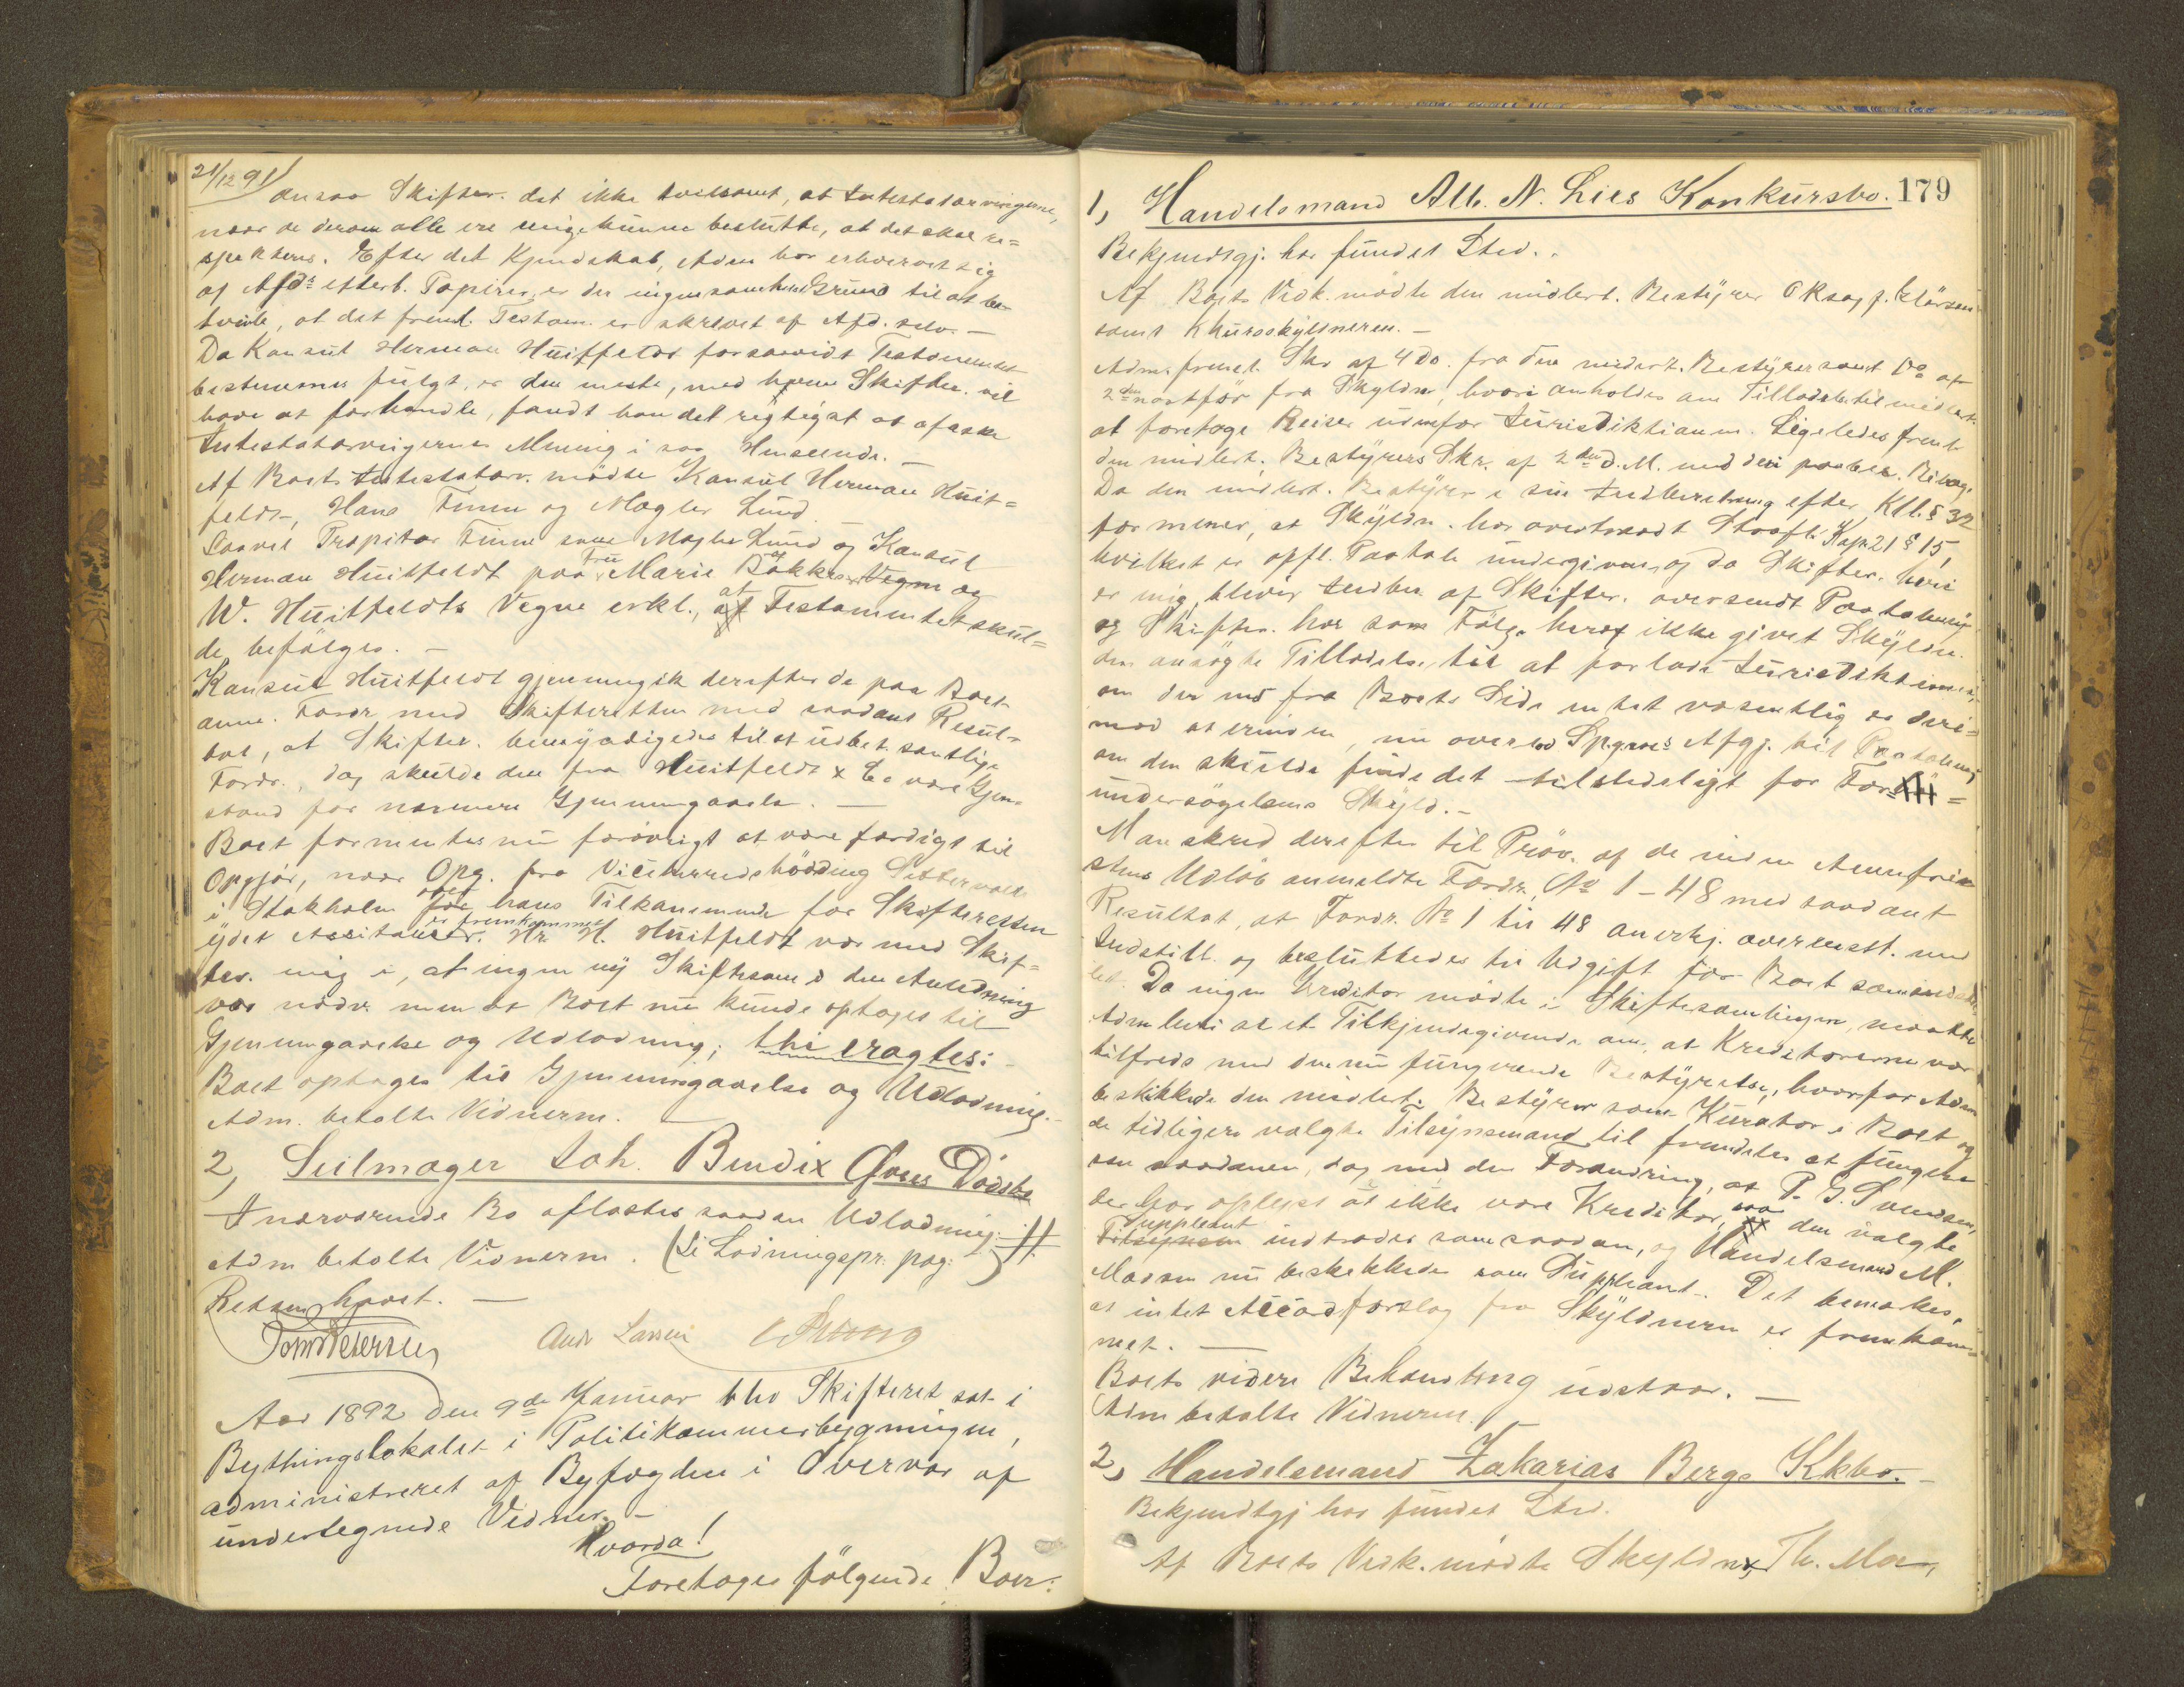 21/12 91
ansaa Skifter. det ikke tvilsomt, at Intestatarvingerne,
naar de derom alle ere enige kunne beslutte, at det skal re=
spekteres. Efter det Kjendskab, Adm har erhvervet sig
af Afdr efterl. Papirer, er der ingensomhelst Grund til at be-
tvivle, at det freml. Testam. er skrevet af Afd. selv. —
Da Konsul Herman Huitfeldt forsaavidt Testamentets
bestemmes fulgt, er den eneste, med hvem Skifter. vil
have at forhandle, fandt han det rigtigst at afæske
Intestatarvingernes Mening i saa Henseende. —
Af Boets Intestatarv. mødte Konsul Herman Huit=
feldt, Hans Finne og Mægler Lund.
Saavel Propritær Finne som Mægler Lund og Konsul
Herman Huitfeldt paa Fru Marie Bakkes og
W. Huitfeldts Vegne erkl., at Testamentet skul=
de befølges. —
Konsul Huitfeldt gjennemgik derefter de paa Boet
anm. Fordr med Skifteretten med saadant Resul=
tat, at Skifter. bemyndigedes til at udbet. samtlige
Fordr., dog skulde den fra Huitfeldt & Co være Gjen=
stand for nærmere Gjennemgaaelse. —
Boet formentes nu forøvrigt at være færdigt til
Opgjør, naar Opg. fra Viceherredshövding Settervall
i Stokholm over hans Tilkommende for Skifteretten
ydet Assistance er fremkommet. Hr. H. Huitfeldt var med Skif=
ter. enig i, at ingen ny Skiftesaml i den Anledning
var nødv. men at Boet nu kunde optages til
Gjennemgaaelse og Udlodning; thi eragtes:
Boet optages til Gjennemgaaelse og Udlodning. —
Adm. betalte Vidnerne. —
2, Seilmager Joh. Bendix Øvres Dødsbo
I nærværende Bo aflastes saadan Udlodning: #
Adm betalte Vidnerne. (Se Lodningspr. pag: ) #
Retten hævet. —
Tom Petersen Andr Larsen
Aar 1892 den 9de Januar blev Skifteret sat i
Bythingslokalet i Politikammerbygningen,
administreret af Byfogden i Overvær af
undertegnede Vidner. —
Hvorda!
Foretoges følgende Boer:
179
1, Handelsmand Alb. N. Lies Konkursbo.
Bekjendtgj. har fundet Sted. .
Af Boets Vedk. mødte den midlert. Bestyrer O Ksagf.
samt Khursskyldneren. —
Adm. freml. Skr af 4 Do. fra den midlert. Bestyrer samt Do af
2den næstfør fra Skyldn, hvori anholdes om Tilladelse til midlert.
at foretage Reiser udenfor Jurisdiktionen. Ligeledes freml.
den midlert. Bestyrers Skr. af 2den d. M. med deri paaber. Bilag.
Da den midlert. Bestyrer i sin Indberetning efter Kll. § 32
formener, at Skyldn. har overtraadt Straffl. Kap 21 § 15,
hvilket er offl. Paatale undergiven, og da Skifter. heri
er enig, bliver Indber. af Skifter. oversendt Paatalemy.
og Skifter. har som Følge heraf ikke givet Skyldn.
den ansøgte Tilladelse til at forlade Jurisdiktionen,
om der end fra Boets Side intet væsentlig er deri=
mod at erindre, nu overlod Spgmes Afgj. til Paatalemy
om den skulde finde det tilstedeligt for For=
undersøgelsens Skyld. —
Man skred derefter til Prøv. af de inden Anmfri=
stens Udløb anmeldte Fordr. No 1 – 48 med saadant
Resultat, at Fordr. No 1 til 48 anerkj. overensst. med
Indstill. og besluttedes til Udgift for Boet
Da ingen Kreditor mødte i Skiftesamlingen, maatte
Adm heri se et Tilkjendegivende om, at Kreditorerne var
tilfreds med den nu fungerende Bestyrelse, hvorfor Adm
beskikkede den midlert. Bestyrer som Kurator i Boet og
de tidligere valgte Tilsynsmænd til fremdeles at fungere
som saadanne, dog med den Forandring, at P. G. Svendsen,
der har oplyst at ikke være Kreditor, saa den valgte
Suppleant indtræder som saadan, og Handelsmand M.
Madsen nu beskikkedes som Suppleant. Det bemærkes,
at intet Accordforslag fra Skyldneren er fremkom=
met. —
Boets videre Behandling udstaar. —
Adm betalte Vidnerne. —
2, Handelsmand Zakarias Bergs Kkbo. —
Bekjendtgj har fundet Sted.
Af Boets Vedk. mødte Skyldn, Th. Moe,